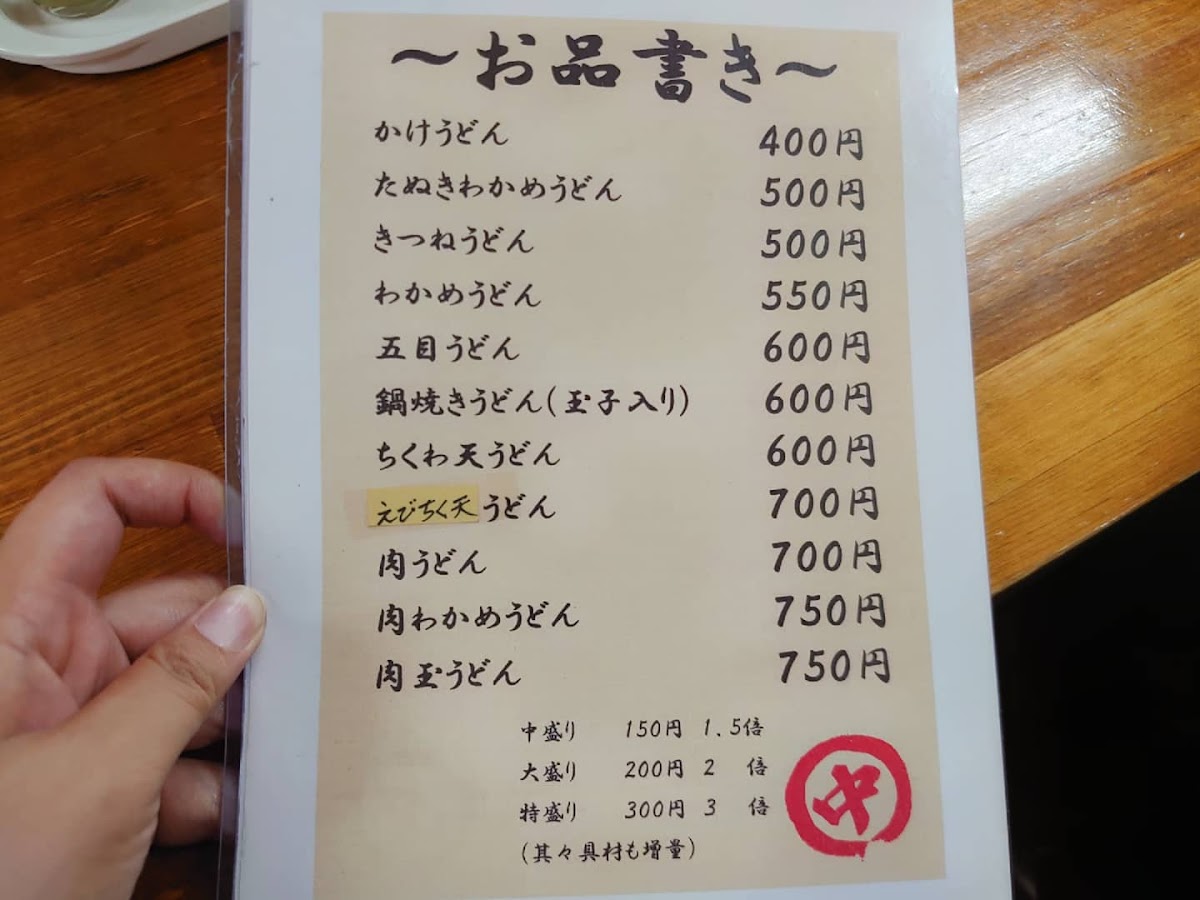 ～お品書き～
かけうどん 400円
たぬきわかめうどん 500円
きつねうどん 500円
わかめうどん 550円
五目うどん 600円
鍋焼きうどん(玉子入り) 600円
ちくわ天うどん 600円
えびちく天うどん 700円
肉うどん 700円
肉わかめうどん 750円
肉玉うどん 750円
中盛り 150円 1.5倍
大盛り 200円 2 倍
特盛り 300円 3 倍
(其々具材も増量)
中